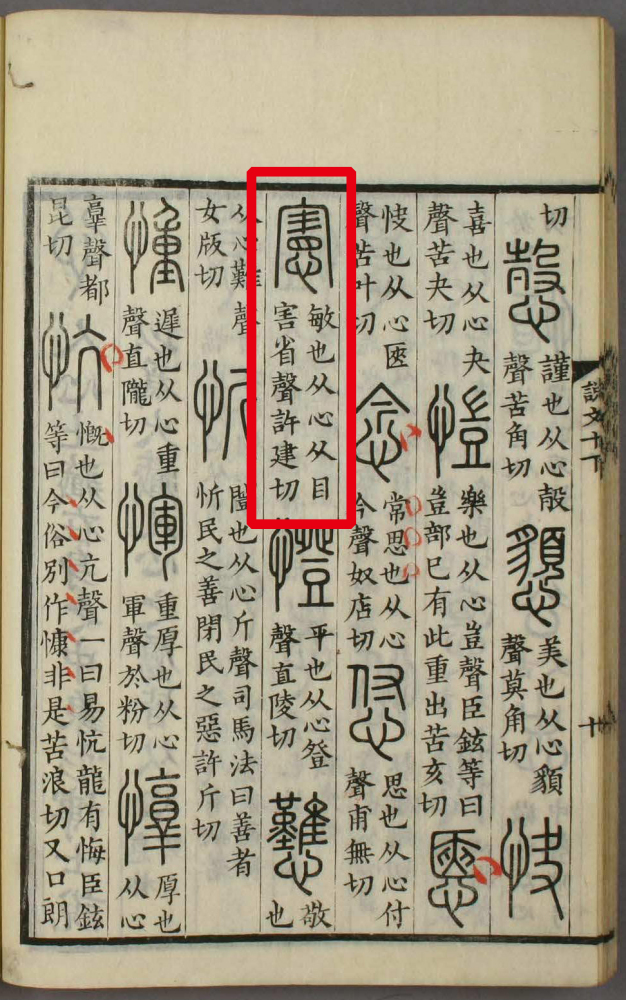 切
愨
謹也从心㱿
聲苦角切
美也从心䫉
聲莫角切
快
喜也从心夬
聲苦夬切
愷
樂也从心豈聲臣鉉等曰
豈部已有此重出苦亥切
㥦
快也从心匧
聲苦叶切
念
常思也从心
今聲奴店切
㤔
思也从心付
聲甫無切
憲
敏也从心从目
害省聲許建切
憕
平也从心登
聲直陵切
戁
敬
也
从心難聲
女版切
忻
闓也从心斤聲司馬法曰善者
忻民之善閉民之惡許斤切
㣫
遲也从心重
聲直隴切
惲
重厚也从心
軍聲於粉切
惇
厚也
从心
𦎫聲都
昆切
忼
慨也从心亢聲一曰易忼龍有悔臣鉉
等曰今俗別作慷非是苦浪切又口朗
說文十下
十